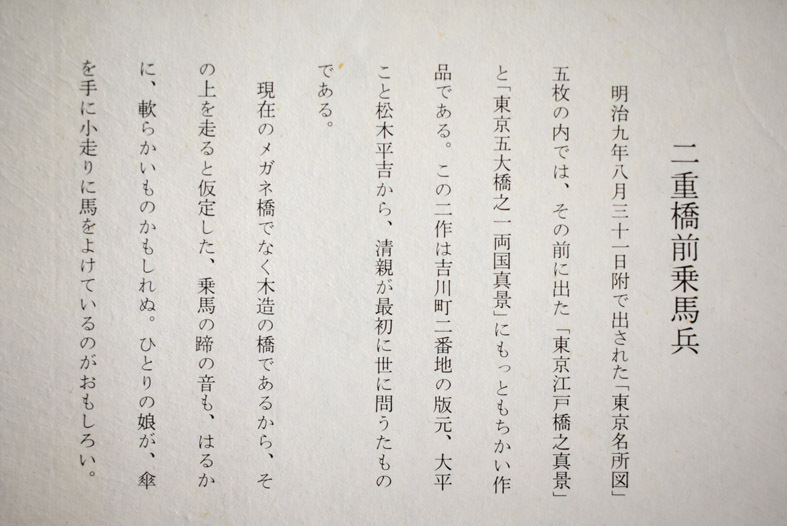 二重橋前乗馬兵
明治九年八月三十一日附で出された「東京名所図」
五枚の内では、その前に出た「東京江戸橋之真景」
と「東京五大橋之一両国真景」にもっともちかい作
品である。この二作は吉川町二番地の版元、大平
こと松木平吉から、清親が最初に世に問うたもの
である。
現在のメガネ橋でなく木造の橋であるから、そ
の上を走ると仮定した、乗馬の蹄の音も、はるか
に、軟らかいものかもしれぬ。ひとりの娘が、傘
を手に小走りに馬をよけているのがおもしろい。